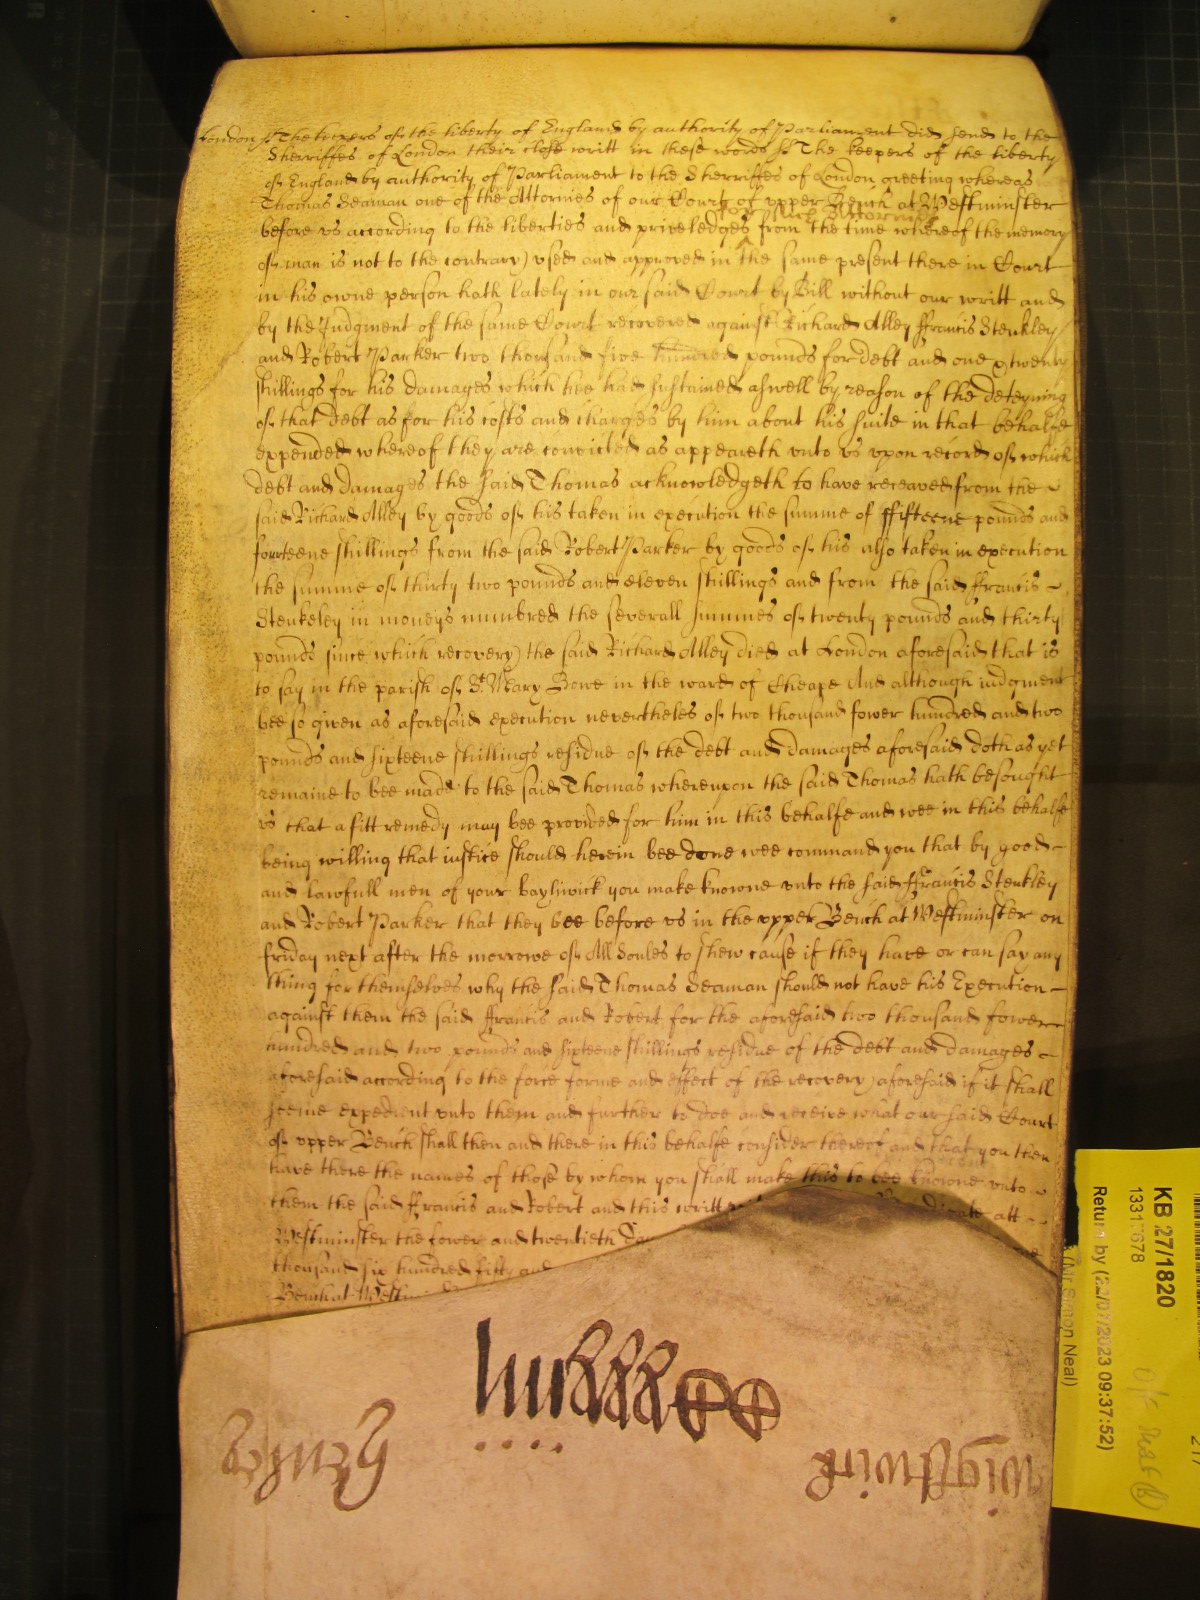 London ss The keepers of the liberty of England by authority of Parliament did send to the
Sherriffes of London their close writt in these words ss The keepers of the liberty
of England by authority of Parliament to the Sherriffes of London greeting whereas
Thomas Seaman one of the Attornies of our Court of upper Bench at Westminster
for such Attornies
before us according to the liberties and priveledges ^ from the time whereof the memory
of man is not to the contrary) used and approved in the same present there in Court
in his owne person hath lately in our said Court by Bill without our writt and
by the Judgment of the same Court recovered against Richard Alley ffrancis Steukley
and Robert Parker two thousand five hundred pounds for debt and one & twenty
shillings for his damages which hee had sustained aswell by reason of the deteyning
of that debt as for his costs and charges by him about his suite in that behalfe
expended whereof they are convicted as appeareth unto us upon record of which
debt and damages the said Thomas acknowledgeth to have receaved from the
said Richard Alley by goods of his taken in execution the summe of ffifteene pounds and
forrteene shillings from the said Robert Parker by goods of his also taken in execution
the summe of thirty two pounds and eleven shillings and from the said ffrancis
Steukeley in moneys numbred the severall summes of twenty pounds and thirty
pounds since which recovery) the said Richard Alley died at London aforesaid that is
to say in the parish of St. Mary Bowe in the ward of Cheape And although iudgment
bee so given as aforesaid execution nevertheles of two thousand fower hundred and two
pounds and sixteene shillings residue of the debt and damages aforesaid doth as yet
remaine to bee made to the said Thomas whereupon the said Thomas hath besought
us that a fitt remedy may bee provided for him in this behalfe and wee in this behalfe
being willing that iustice should herein bee done wee command you that by good
and lawfull men of your bayliwick you make knowne unto the said ffrancis Steukley
and Robert Parker that they bee before us in the upper Bench at Westminster on
friday next after the morrowe of All Soules to shew cause if they have or can say any
thing for themselves why the said Thomas Seaman should not have his Execution
against them the said ffrancis and Robert for the aforesaid two thousand fower
hundred and two pounds and sixteene shillings residue of the debt and damages
aforesaid according to the force forme and effect of the recovery) aforesaid if it shall
seeme expedient unto them and further to doe and receive what our said Court
of upper Bench shall then and there in this behalfe consider thereof and that you then
have there the names of those by whom you shall make this to bee knowne unto
them the said ffrancis and Robert and this writt
att
Westminster the fower and twentieth
thousand six hundred fifty and
Wigftwick
KB 27/1820
Return by (22/07/2023 09:37:52)
(Mr Simon Neal)